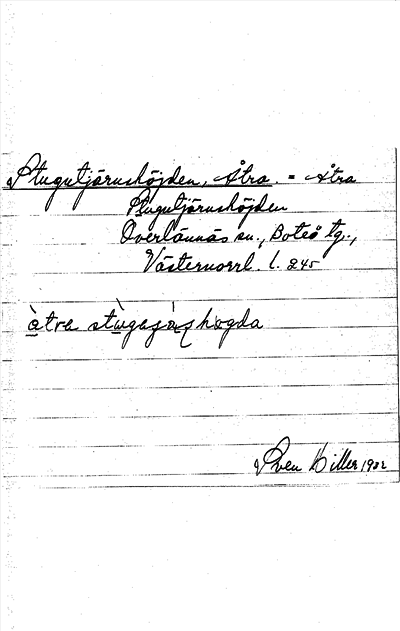 Stugutjärnshöjden, Åtra. = Åtra
Stugutjärnshöjden
Överlännäs sn., Boteå tg.,
Västernorrl. l. 245
Sven Hiller 1932